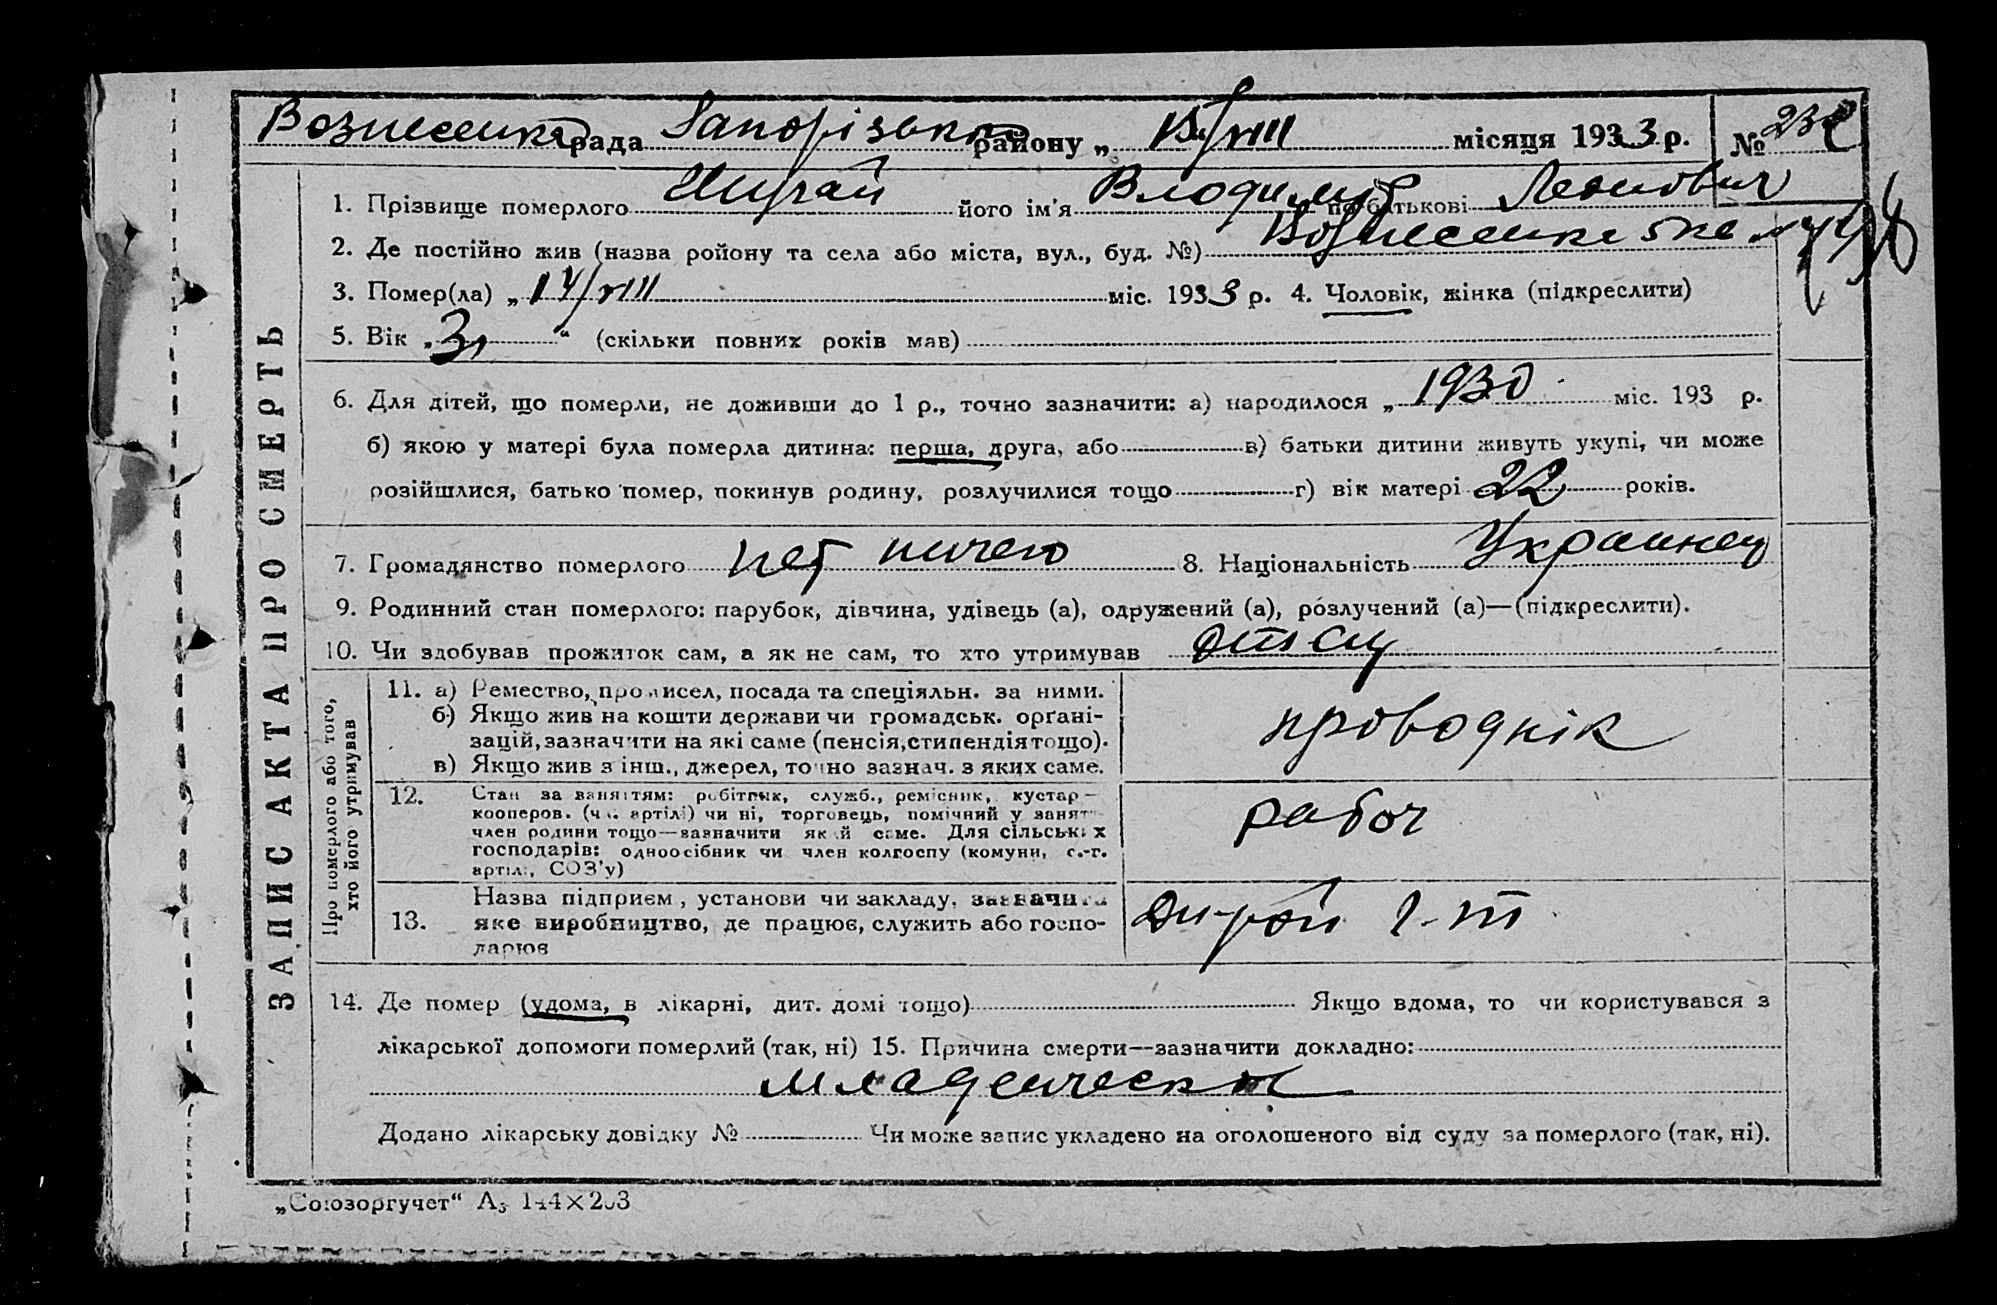 Вознесенка рада Запорізьк району „ 15/VIII місяця 1933 р. № 23
1. Прізвище померлого його ім'я Влодимир по батькові Леонович
2. Де постійно жив (назва ройону та села або міста, вул., буд. №) Вознесенка
3. Помер(ла) „ 14/VIII міс. 1933 р. 4. Чоловік, жінка (підкреслити)
5. Вік „ 3 “ (скільки повних років мав)
6. Для дітей, що померли, не доживши до 1 р., точно зазначити: а) народилося „ 1930 міс. 193 р.
б) якою у матері була померла дитина: перша, друга, або в) батьки дитини живуть укупі, чи може
розійшлися, батько помер, покинув родину, розлучилися тощо г) вік матері 22 років.
7. Громадянство померлого нет ничего 8. Національність Украинец
9. Родинний стан померлого: парубок, дівчина, удівець (а), одружений (а), розлучений (а)—(підкреслити).
10. Чи здобував прожиток сам, а як не сам, то хто утримував отец
ЗАПИС АКТА ПРО СМЕРТЬ
Про померлого або того, хто його утримував
11. а) Ремество, промисел, посада та спеціяльн. за ними.
б) Якщо жив на кошти держави чи громадськ. органі-
зацій, зазначити на які саме (пенсія, стипендія тощо).
в) Якщо жив з інш., джерел, точно зазнач. з яких саме.
проводнік
12. Стан за заняттям: робітник, служб., ремісник, кустар—
кооперов. (чл. артілі) чи ні, торговець, помічний у занят.
член родини тощо—зазначити який саме. Для сільських
господарів: одноосібник чи член колгоспу (комуни, с.-г.
артілі, СОЗ'у)
рабоч
13. Назва підприєм, установи чи закладу, зазначити
яке виробництво, де працює, служить або госпо-
дарює
14. Де помер (удома, в лікарні, дит. домі тощо) Якщо вдома, то чи користувався з
лікарської допомоги померлий (так, ні) 15. Причина смерти—зазначити докладно:
младенческая
Додано лікарську довідку № Чи може запис укладено на оголошеного від суду за померлого (так, ні).
„Союзоргучет“ А₅ 144×203